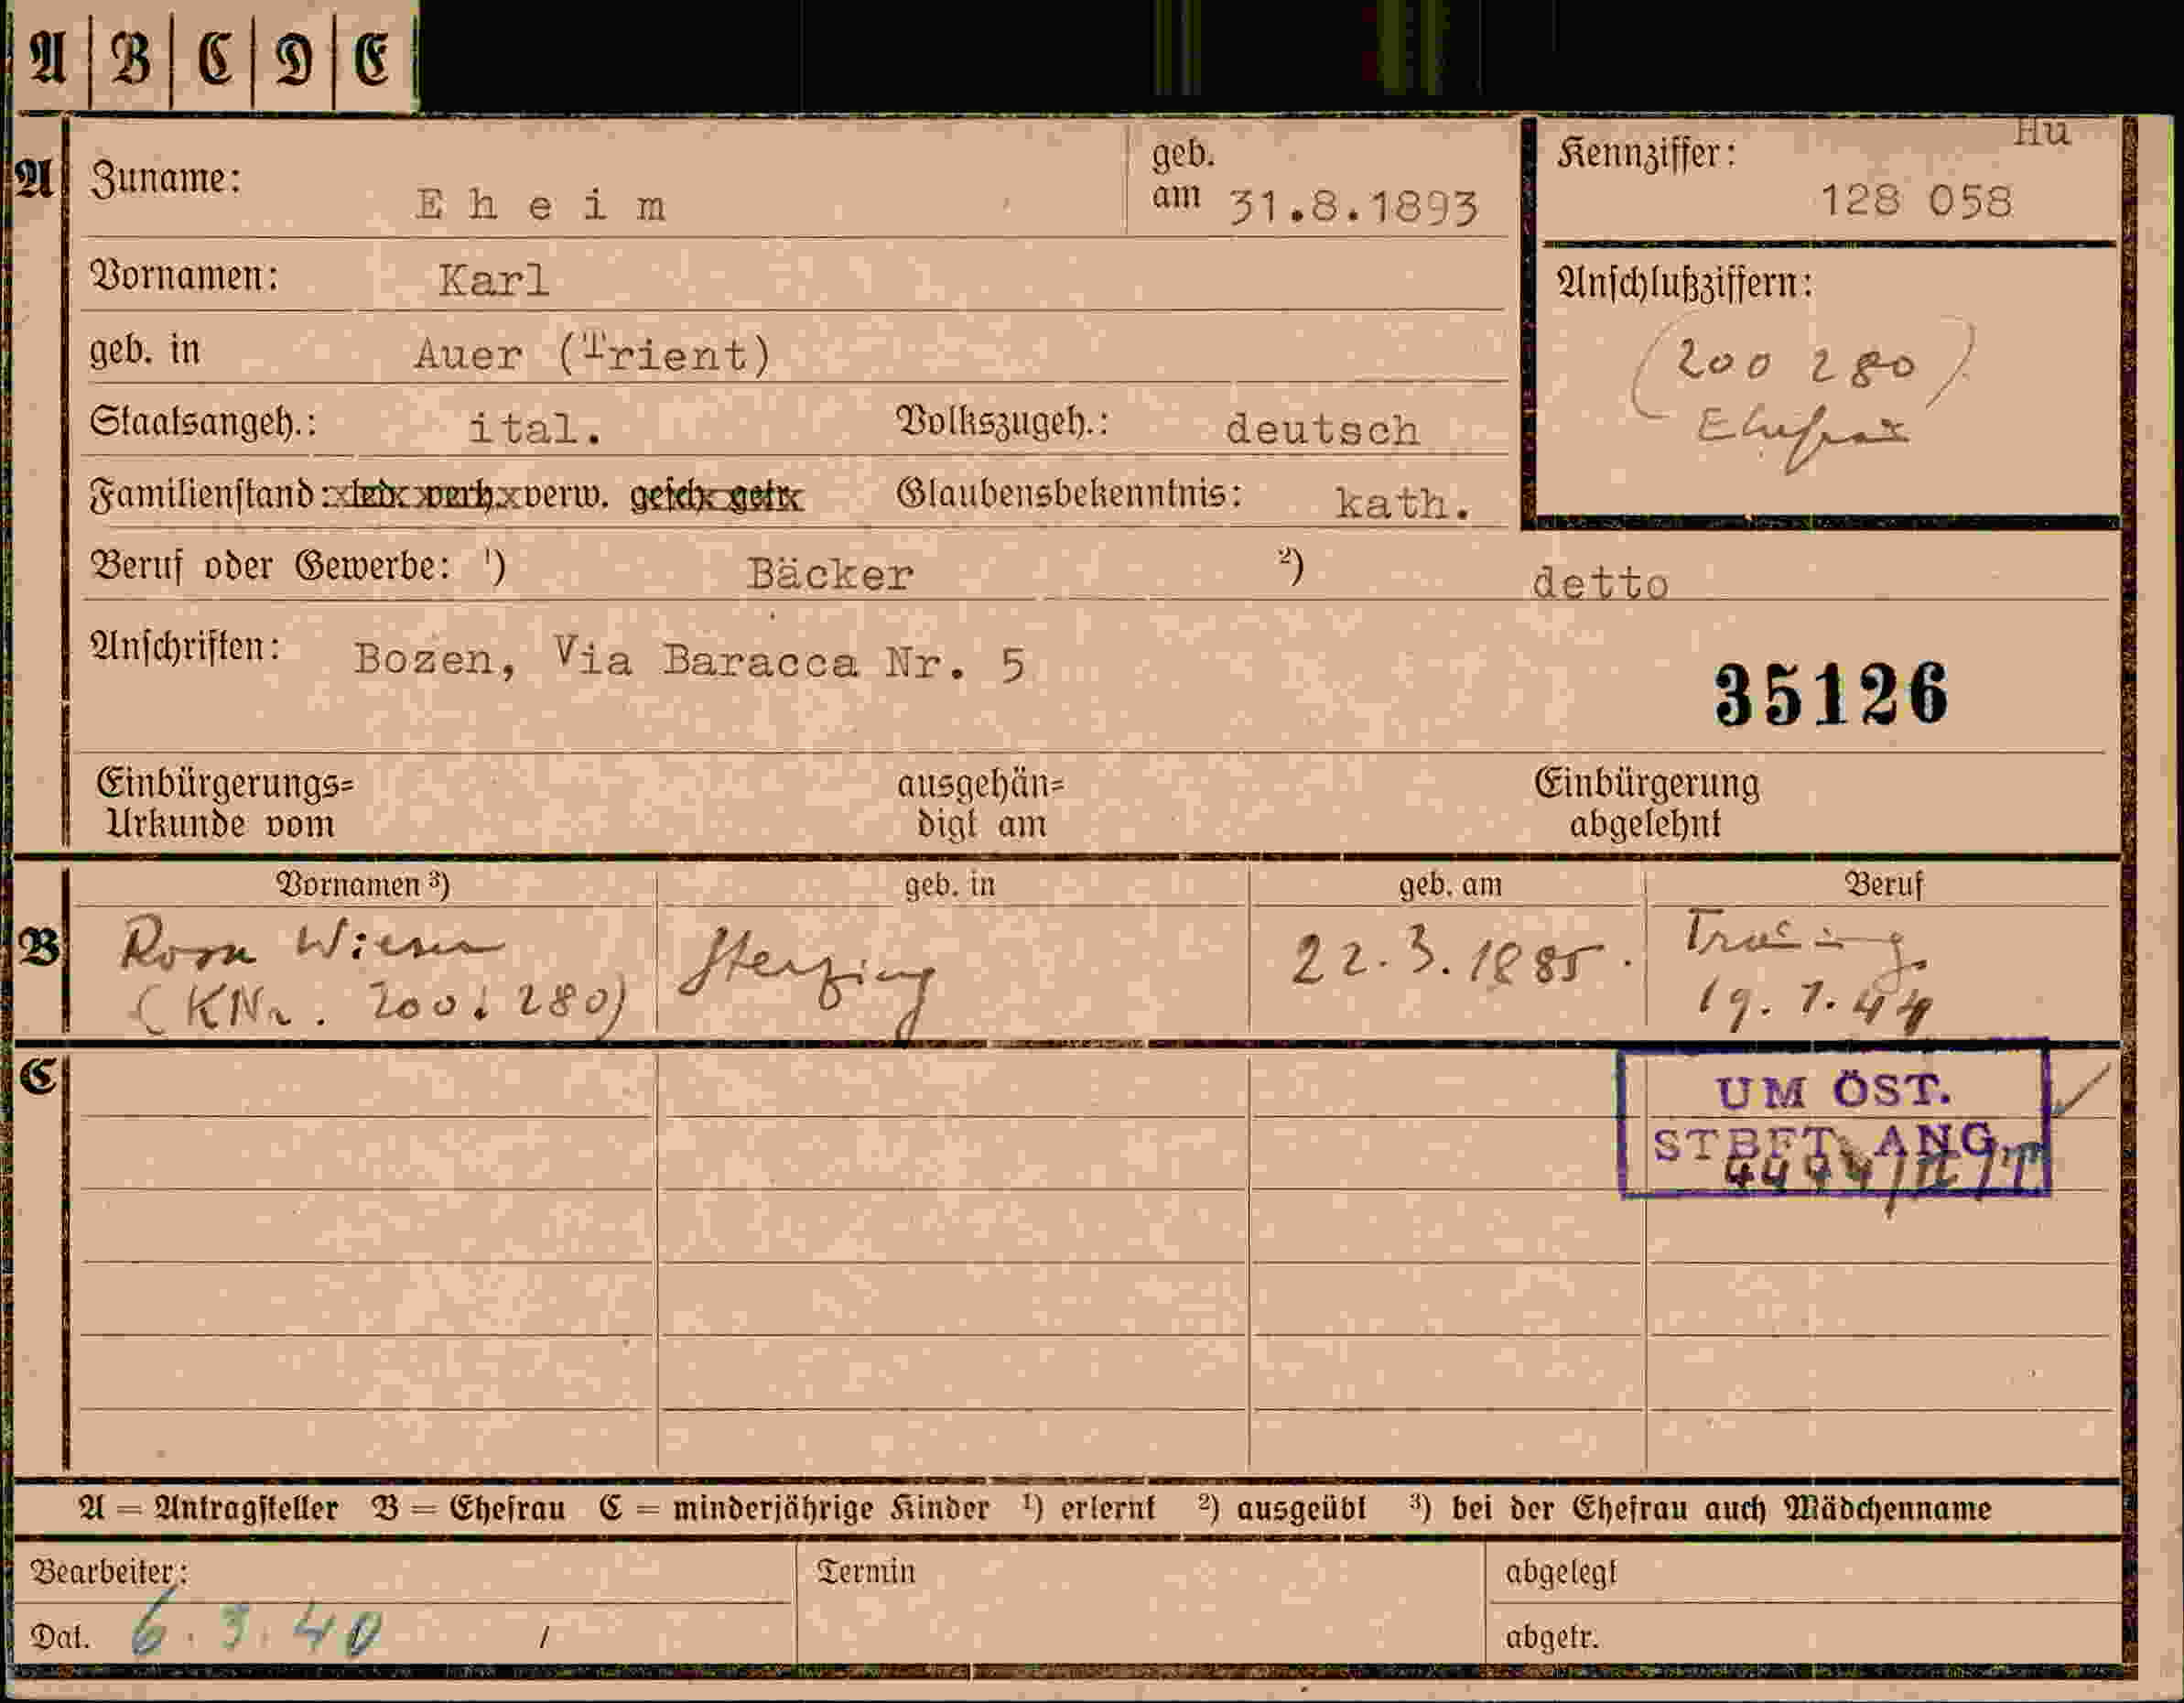 A B C D E
Hu
A
Zuname: Eheim geb. am 31.8.1893
Kennziffer: 128 058
Vornamen: Karl
Anschlußziffern:
(200 280)
Ehefrau
geb. in Auer (Trient)
Staatsangeh.: ital. Volkszugeh.: deutsch
Familienstand: led. verh. verw. gesch. getr. Glaubensbekenntnis: kath.
Beruf oder Gewerbe: 1) Bäcker 2) detto
Anschriften: Bozen, Via Baracca Nr. 5
35126
Einbürgerungs= Urkunde vom
ausgehän= digt am
Einbürgerung abgelehnt
Vornamen 3) geb. in geb. am Beruf
B
Rosa Wieser Sterzing 22.3.1885. Trauung
(KNr. 200.280) 19.1.44
C
UM ÖST.
STBFT. ANG.
A = Antragsteller B = Ehefrau C = minderjährige Kinder 1) erlernt 2) ausgeübt 3) bei der Ehefrau auch Mädchenname
Bearbeiter: Termin abgelegt
Dat. 6.3.40 / abgetr.